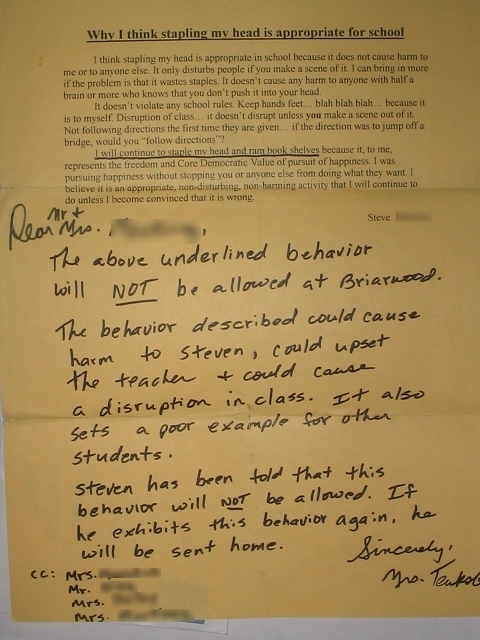 Why I think stapling my head is appropriate for school
I think stapling my head is appropriate in school because it does not cause harm to
me or to anyone else. It only disturbs people if you make a scene of it. I can bring in more
if the problem is that it wastes staples. It doesn't cause any harm to anyone with half a
brain or more who knows that you don't push it into your head.
It doesn't violate any school rules. Keep hands feet... blah blah blah... because it
is to myself. Disruption of class... it doesn't disrupt unless you make a scene out of it.
Not following directions the first time they are given... if the direction was to jump off a
bridge, would you "follow directions"?
I will continue to staple my head and ram book shelves because it, to me,
represents the freedom and Core Democratic Value of pursuit of happiness. I was
pursuing happiness without stopping you or anyone else from doing what they want. I
believe it is an appropriate, non-disturbing, non-harming activity that I will continue to
do unless I become convinced that it is wrong.
Steve
Dear Mr + Mrs.
The above underlined behavior
will NOT be allowed at Briarwood.
The behavior described could cause
harm to Steven, could upset
the teacher + could cause
a disruption in class. It also
sets a poor example for other
students.
Steven has been told that this
behavior will NOT be allowed. If
he exhibits this behavior again, he
will be sent home.
Sincerely,
Mrs.
cc: Mrs.
Mr.
Mrs.
Mrs.